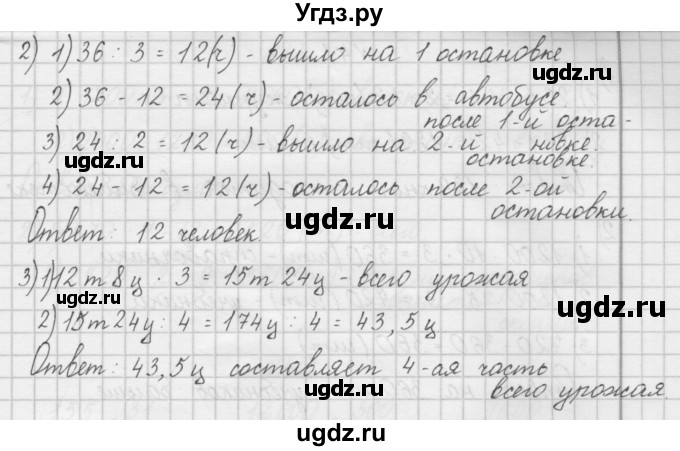 Угдз.ру
2) 1) 36 : 3 = 12(ч) - вышло на 1 остановке
2) 36 - 12 = 24(ч) - осталось в автобусе
после 1-й оста-
новке.
3) 24 : 2 = 12(ч) - вышло на 2-й
остановке.
4) 24 - 12 = 12(ч) - осталось после 2-ой
остановки.
Ответ: 12 человек.
3) 1) 12т 8ц · 3 = 15т 24ц - всего урожая
2) 15т 24ц : 4 = 174ц : 4 = 43,5 ц
Ответ: 43,5 ц составляет 4-ая часть
всего урожая.
ugdz.ru
ugdz.ru
ugdz.ru
ugdz.ru
ugdz.ru
ugdz.ru
ugdz.ru
ugdz.ru
ugdz.ru
ugdz.ru